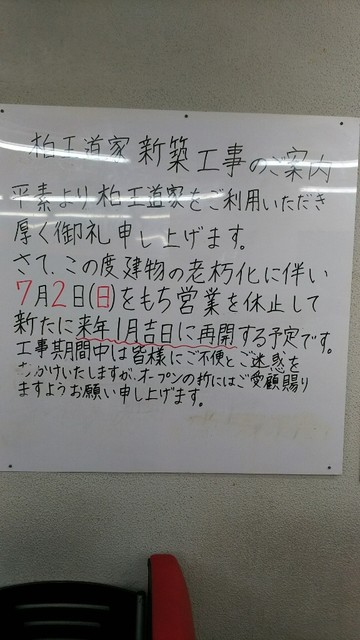 柏王道家 新築工事のご案内
平素より柏王道家をご利用いただき
厚く御礼申し上げます。
さて、この度建物の老朽化に伴い
7月2日(日)をもち営業を休止して
新たに来年1月吉日に再開する予定です。
工事期間中は皆様にご不便とご迷惑を
おかけいたしますが、オープンの折にはご愛顧賜り
ますようお願い申し上げます。